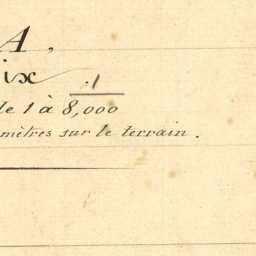 A,
ix
.1
de 1 à 8,000
mètres sur le terrain.